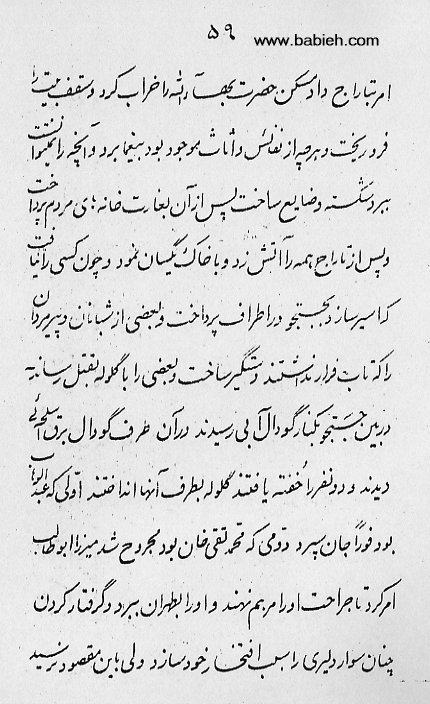 ۵۹
www.babieh.com
امر بتاراج داد مسکن حضرت بهآءالله را خراب کرد و سقف بیت را
فرو ریخت و هرچه از نفائس و اثاث موجود بود بیغما برد و آنچه را نمیتوانست
ببرد شکسته و ضایع ساخت پس از آن بغارت خانه‌های مردم پرداخت
و پس از تاراج همه را آتش زد و با خاک یکسان نمود و چون کسی را نیافت
که اسیر سازد بجستجو در اطراف پرداخت و بعضی از شبانان و پیرمردان
را که تاب فرار نداشتند دستگیر ساخت و بعضی را با گلوله بقتل رسانید
در بین جستجو بکنار گودال آبی رسیدند در آن طرف گودال برق اسلحه‌ئی
دیدند و دو نفر را خفته یافتند گلوله بطرف آنها انداختند اولی که عبدالوهاب
بود فوراً جان سپرد دومی که محمد تقی خان بود مجروح شد میرزا ابوطالب
امر کرد تا جراحت او را مرهم نهند و او را بطهران ببرد و گرفتار کردن
چنان سوار دلیری را سبب افتخار خود سازد ولی باین مقصود نرسید